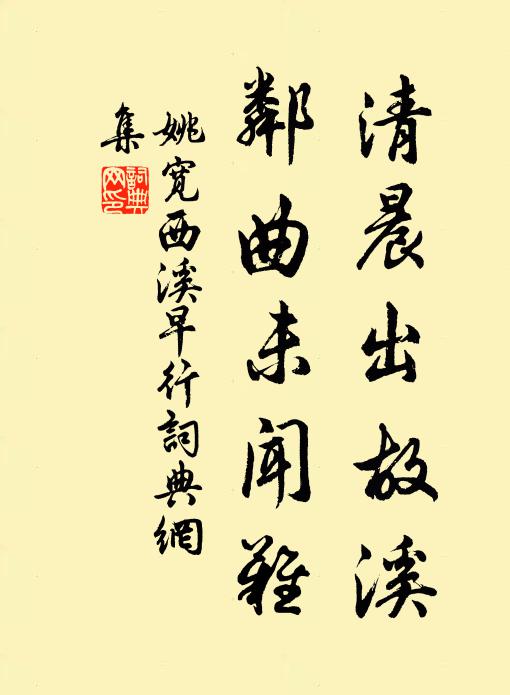 清晨出故溪
鄰曲未聞雞
姚寬西溪早行詞典網
集
詞典
网印